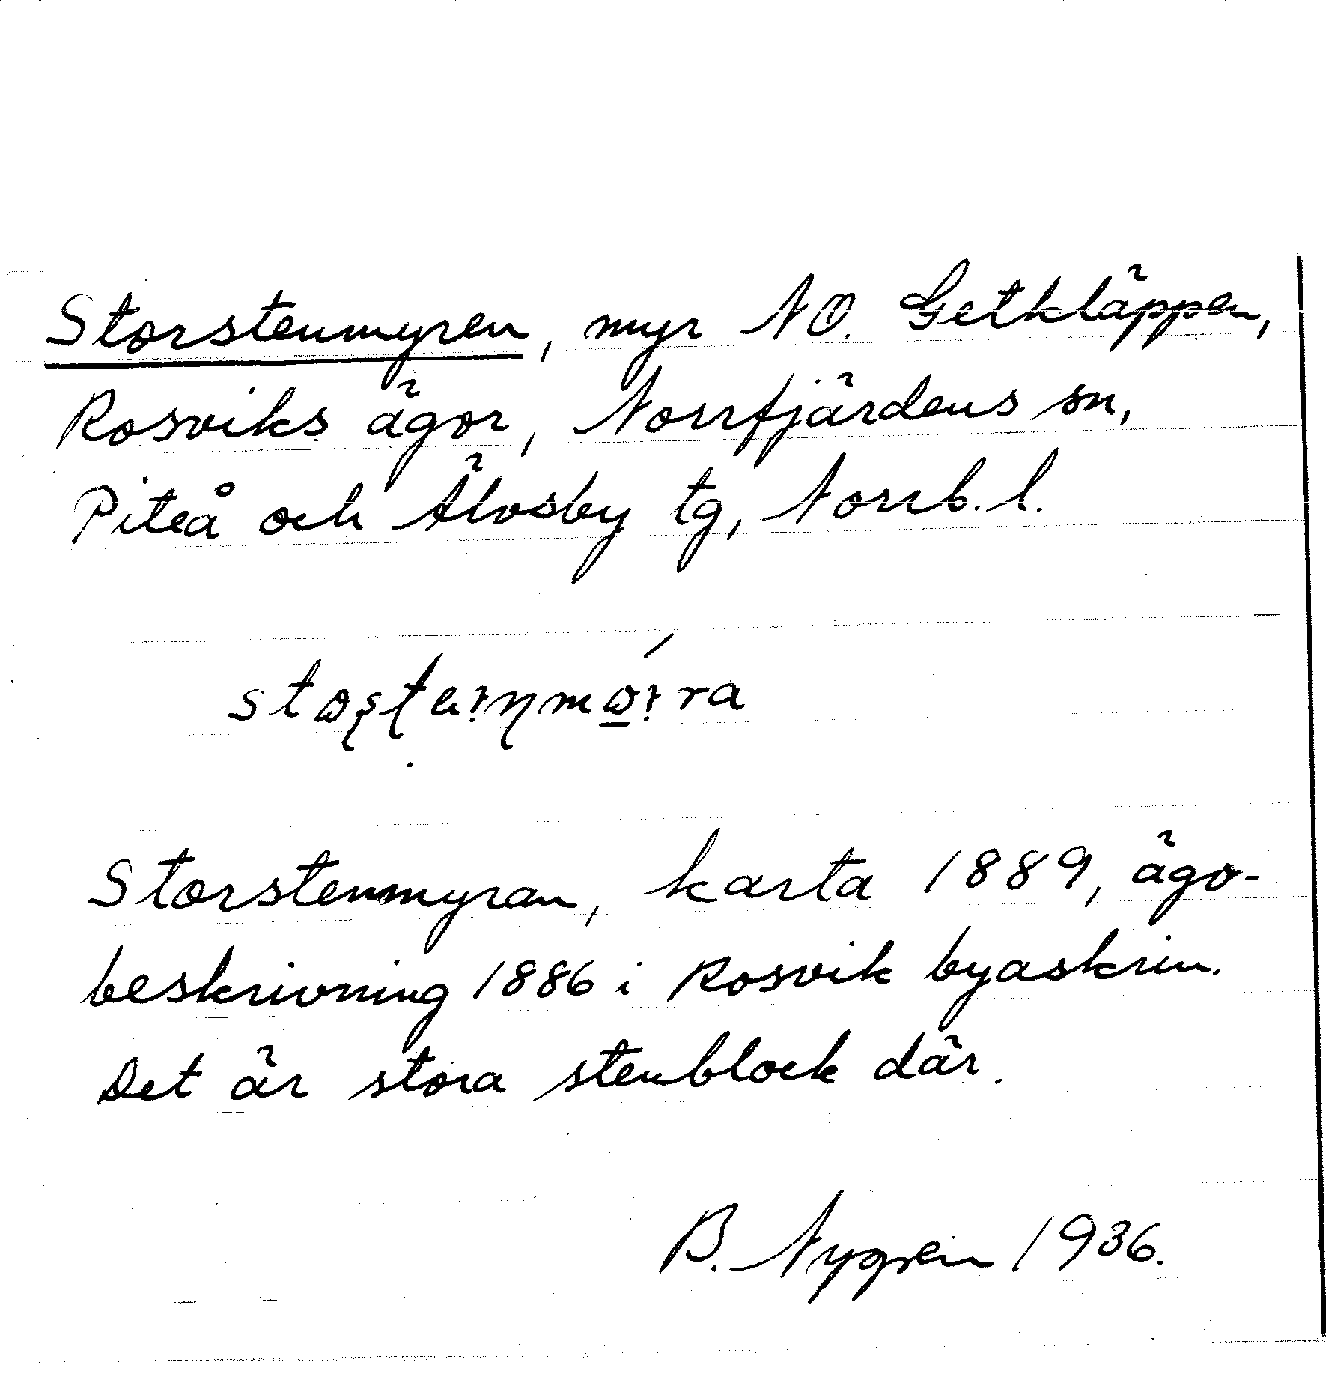 Storstenmyren, myr NO. Getkläppen,
Rosviks ägor, Norrfjärdens sn,
Piteå och Älvsby tg, Norrb. l.
Storstenmyran, karta 1889, ägo-
beskrivning 1886 i Rosvik byaskrin.
Det är stora stenblock där.
B. Nygren 1936.